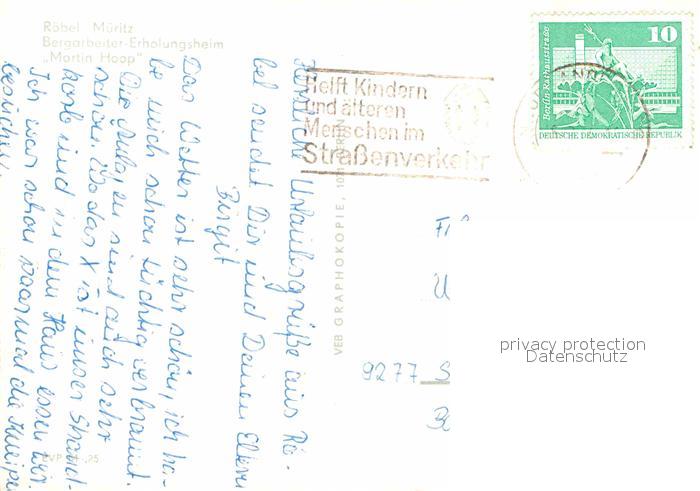 Röbel Müritz
Bergarbeiter-Erholungsheim
„Martin Hoop"
Helft Kindern
und älteren
Menschen im
Straßenverkehr
Berlin Rathausstraße
10
DEUTSCHE DEMOKRATISCHE REPUBLIK
VEB GRAPHOKOPIE, BERLIN
Herzliche Urlaubsgrüße aus Rö-
bel sendet Dir und Deinen Eltern
Birgit
Das Wetter ist sehr schön, ich ha-
be mich schon tüchtig verbrannt.
Die Anlagen sind auch sehr
schön. Wo das X ist unser Strand-
korb und in dem Haus essen wir.
Ich war schon paarmal die Kneipe
besuchen
9277
privacy protection
Datenschutz
EVP